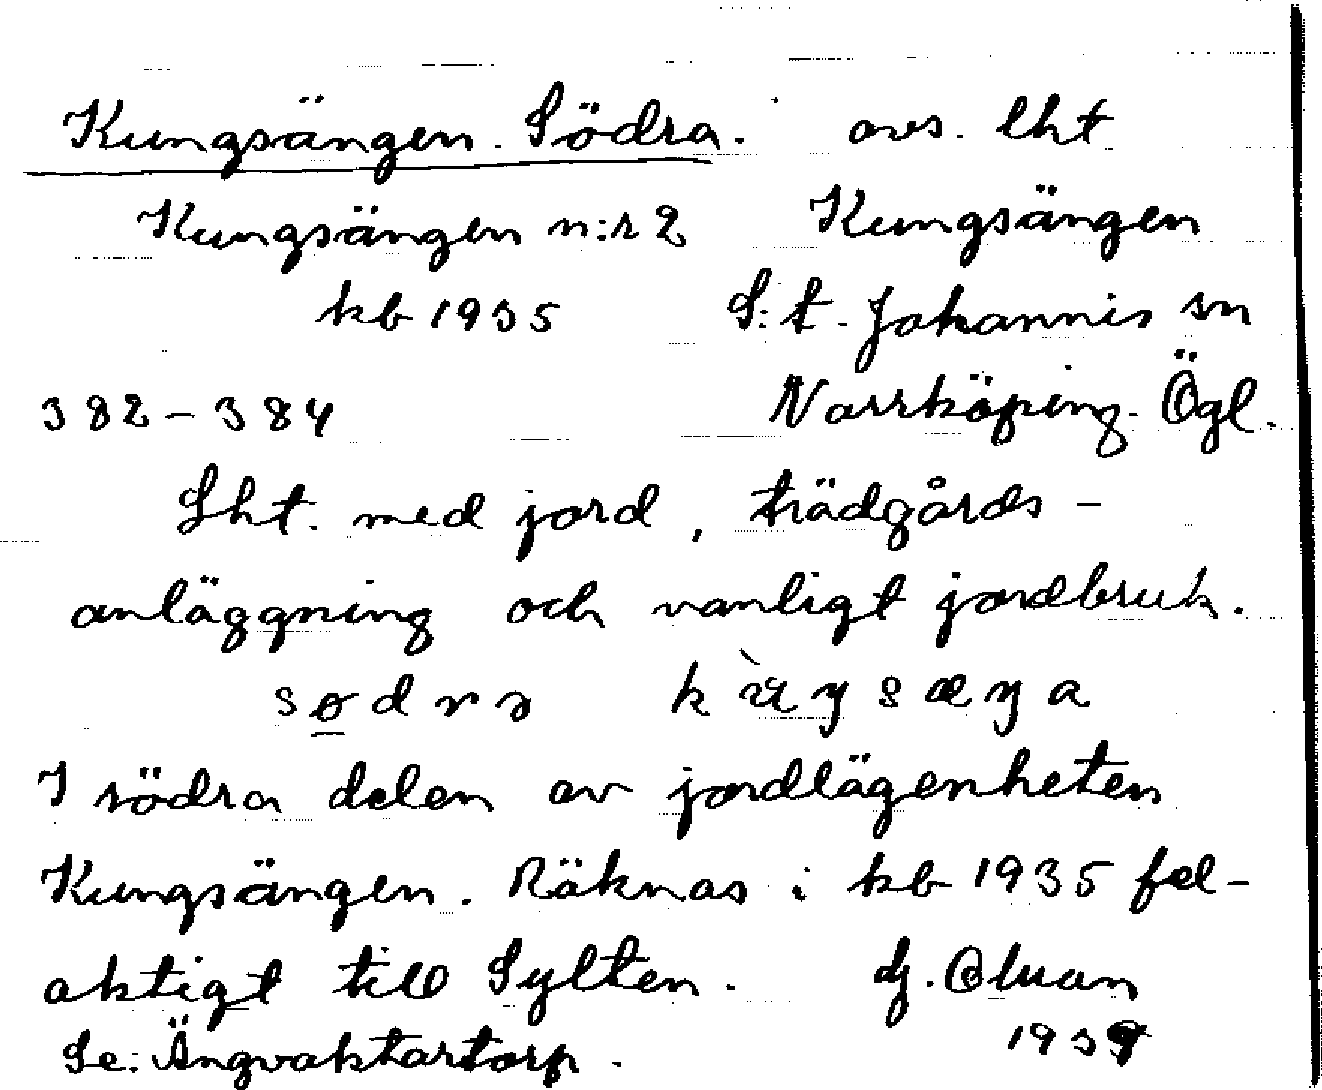 Kungsängen. Södra. avs. lht
Kungsängen n:r 2 Kungsängen
kb 1935 S:t. Johannis sn
382-384 Norrköping. Ögl.
Lht. med jord, trädgårds-
anläggning och vanligt jordbruk.
I södra delen av jordlägenheten
Kungsängen. Räknas i kb 1935 fel-
aktigt till Sylten. 
Se: Ängvaktartorp.